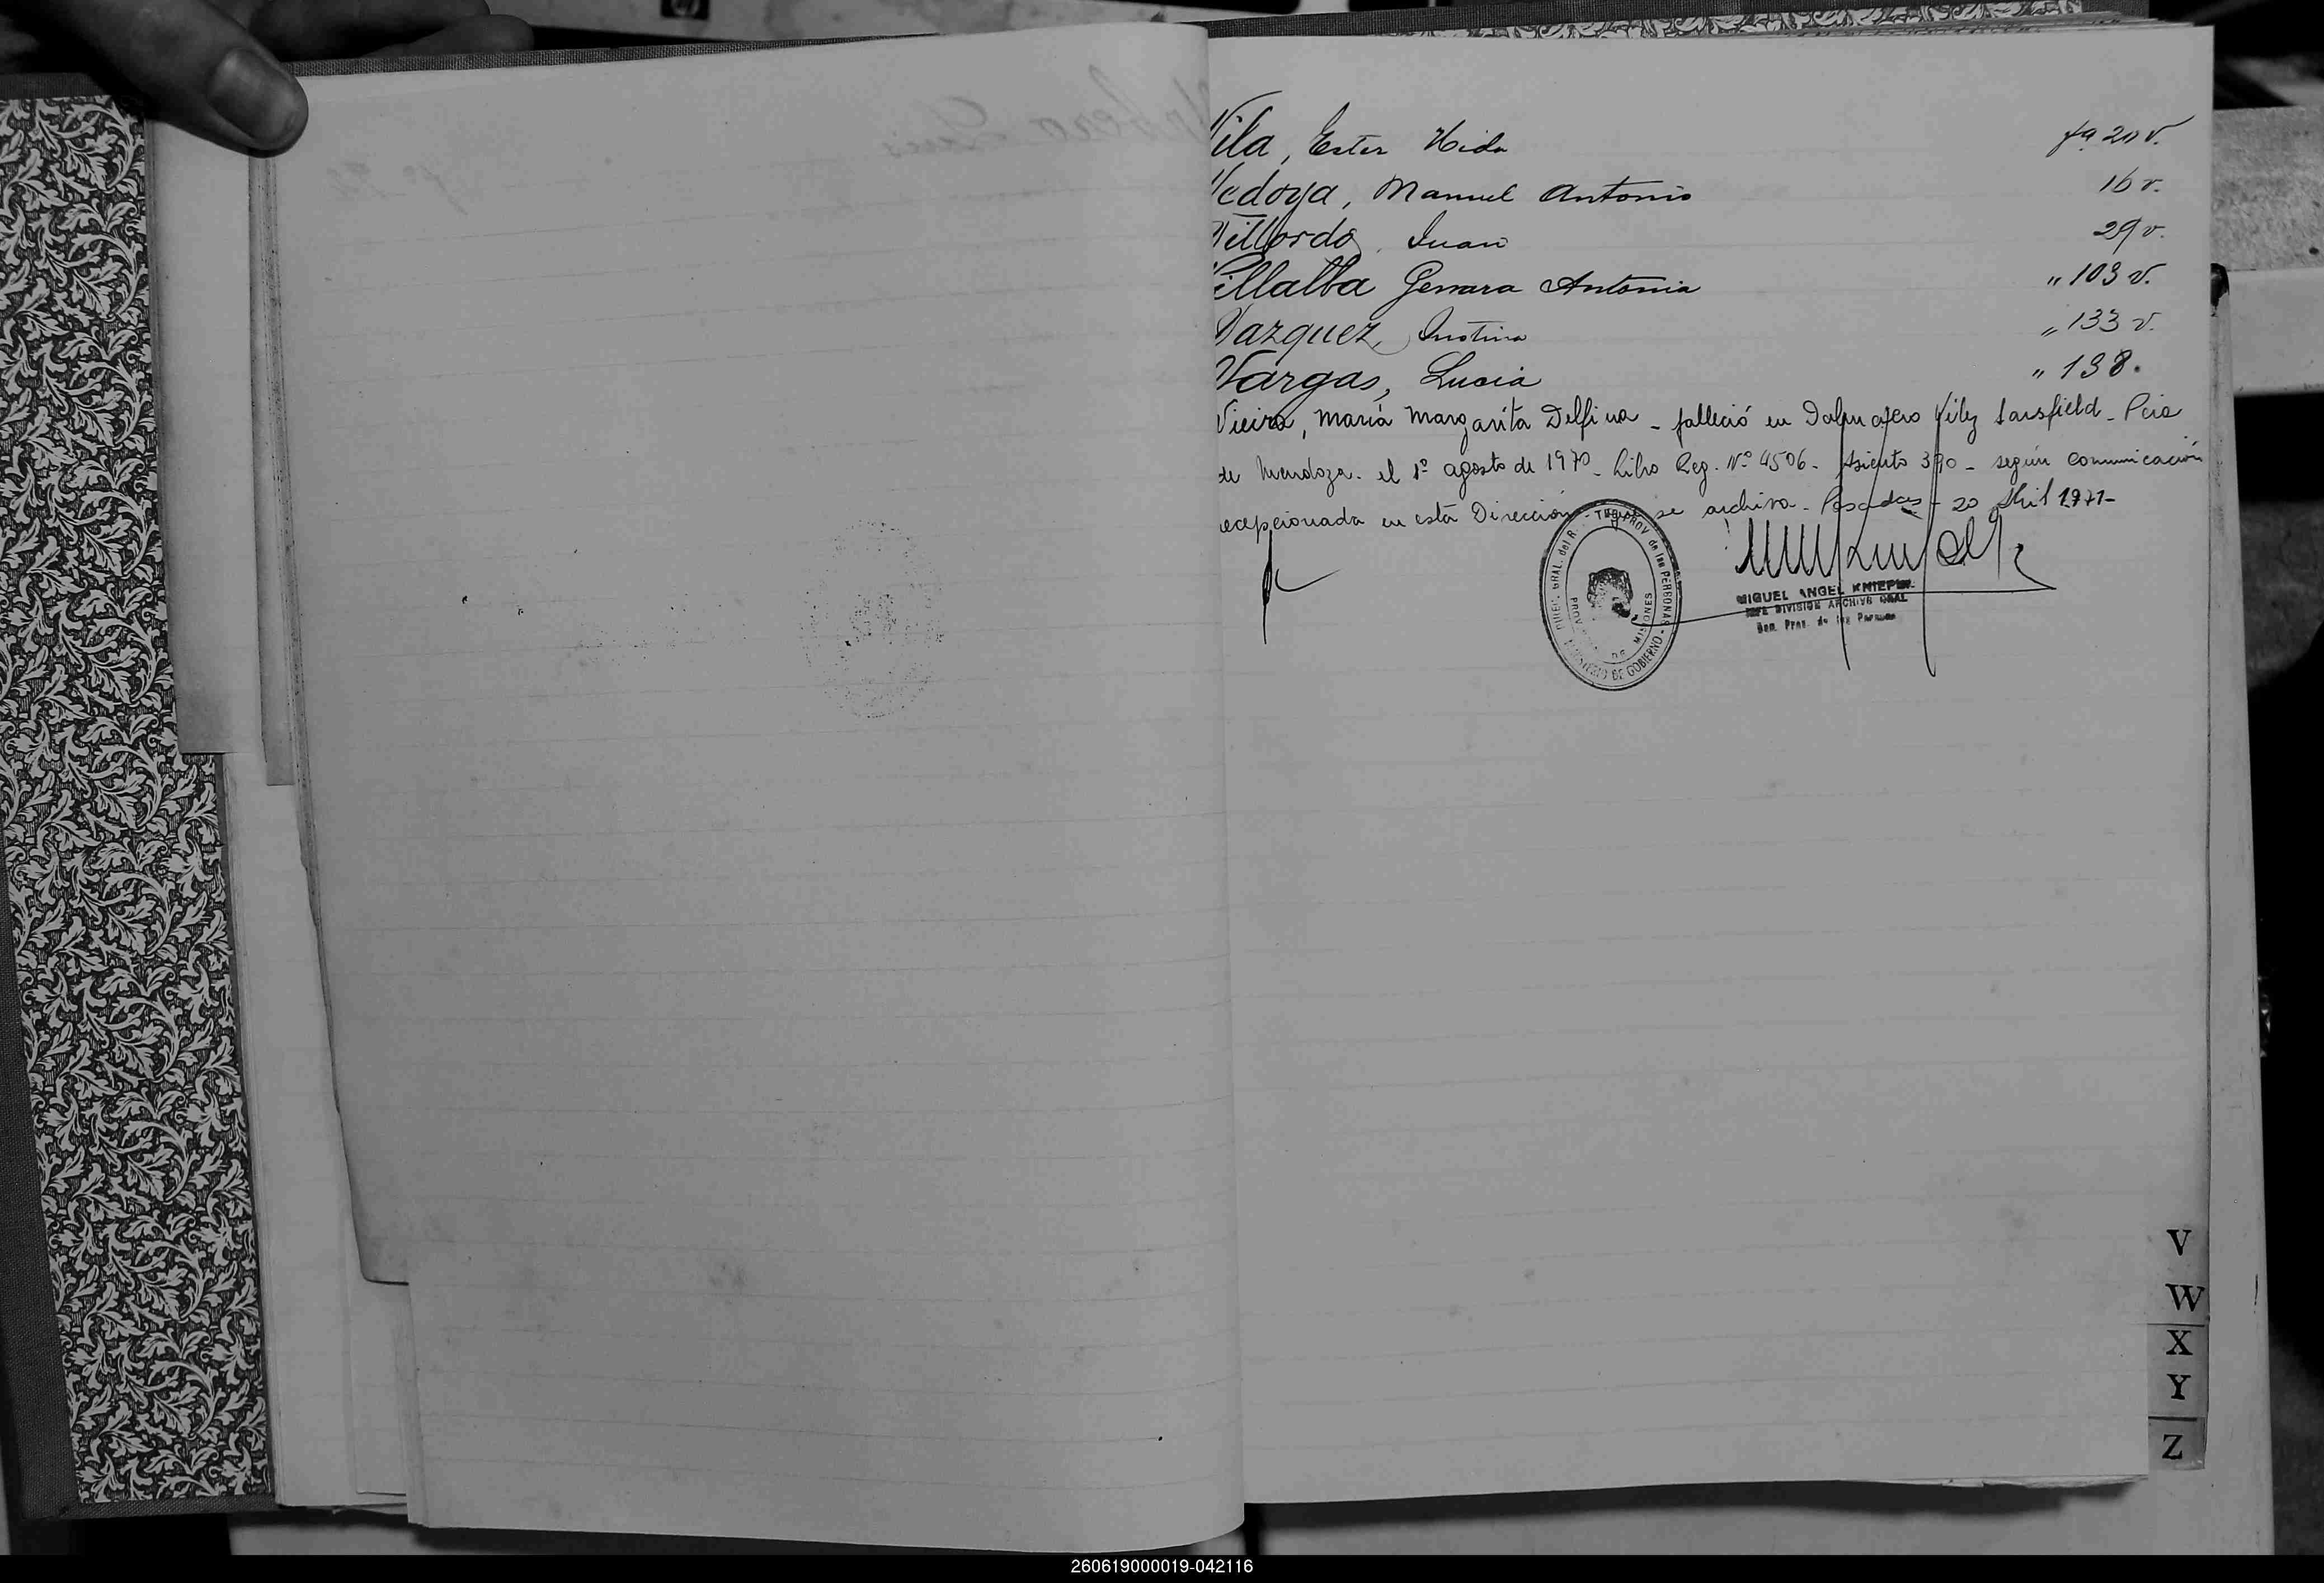 Vila, Ester Hida fº 20 v.
Vedoya, Manuel Antonio 16 v.
Villordo, Juan 29 v.
Villalba Genara Antonia " 103 v.
Vazquez, Justina " 133 v.
Vargas, Lucia " 138.
Vieira, María Margarita Delfina - falleció en Dalmacio Vélez Sarsfield - Pcia
de Mendoza - el 1º agosto de 1970 - Libro Reg. Nº 4506 - Asiento 390 - según comunicación
recepcionada en esta Dirección se archiva - Posadas - 20 Abril 1971-
DIREC. GRAL. del R. PROV de las PERSONAS
PROVINCIA DE MISIONES
MINISTERIO DE GOBIERNO
MIGUEL ANGEL
JEFE DIVISION ARCHIVO GRAL
Reg. Prov. de las Personas
V
W
X
Y
Z
260619000019-042116